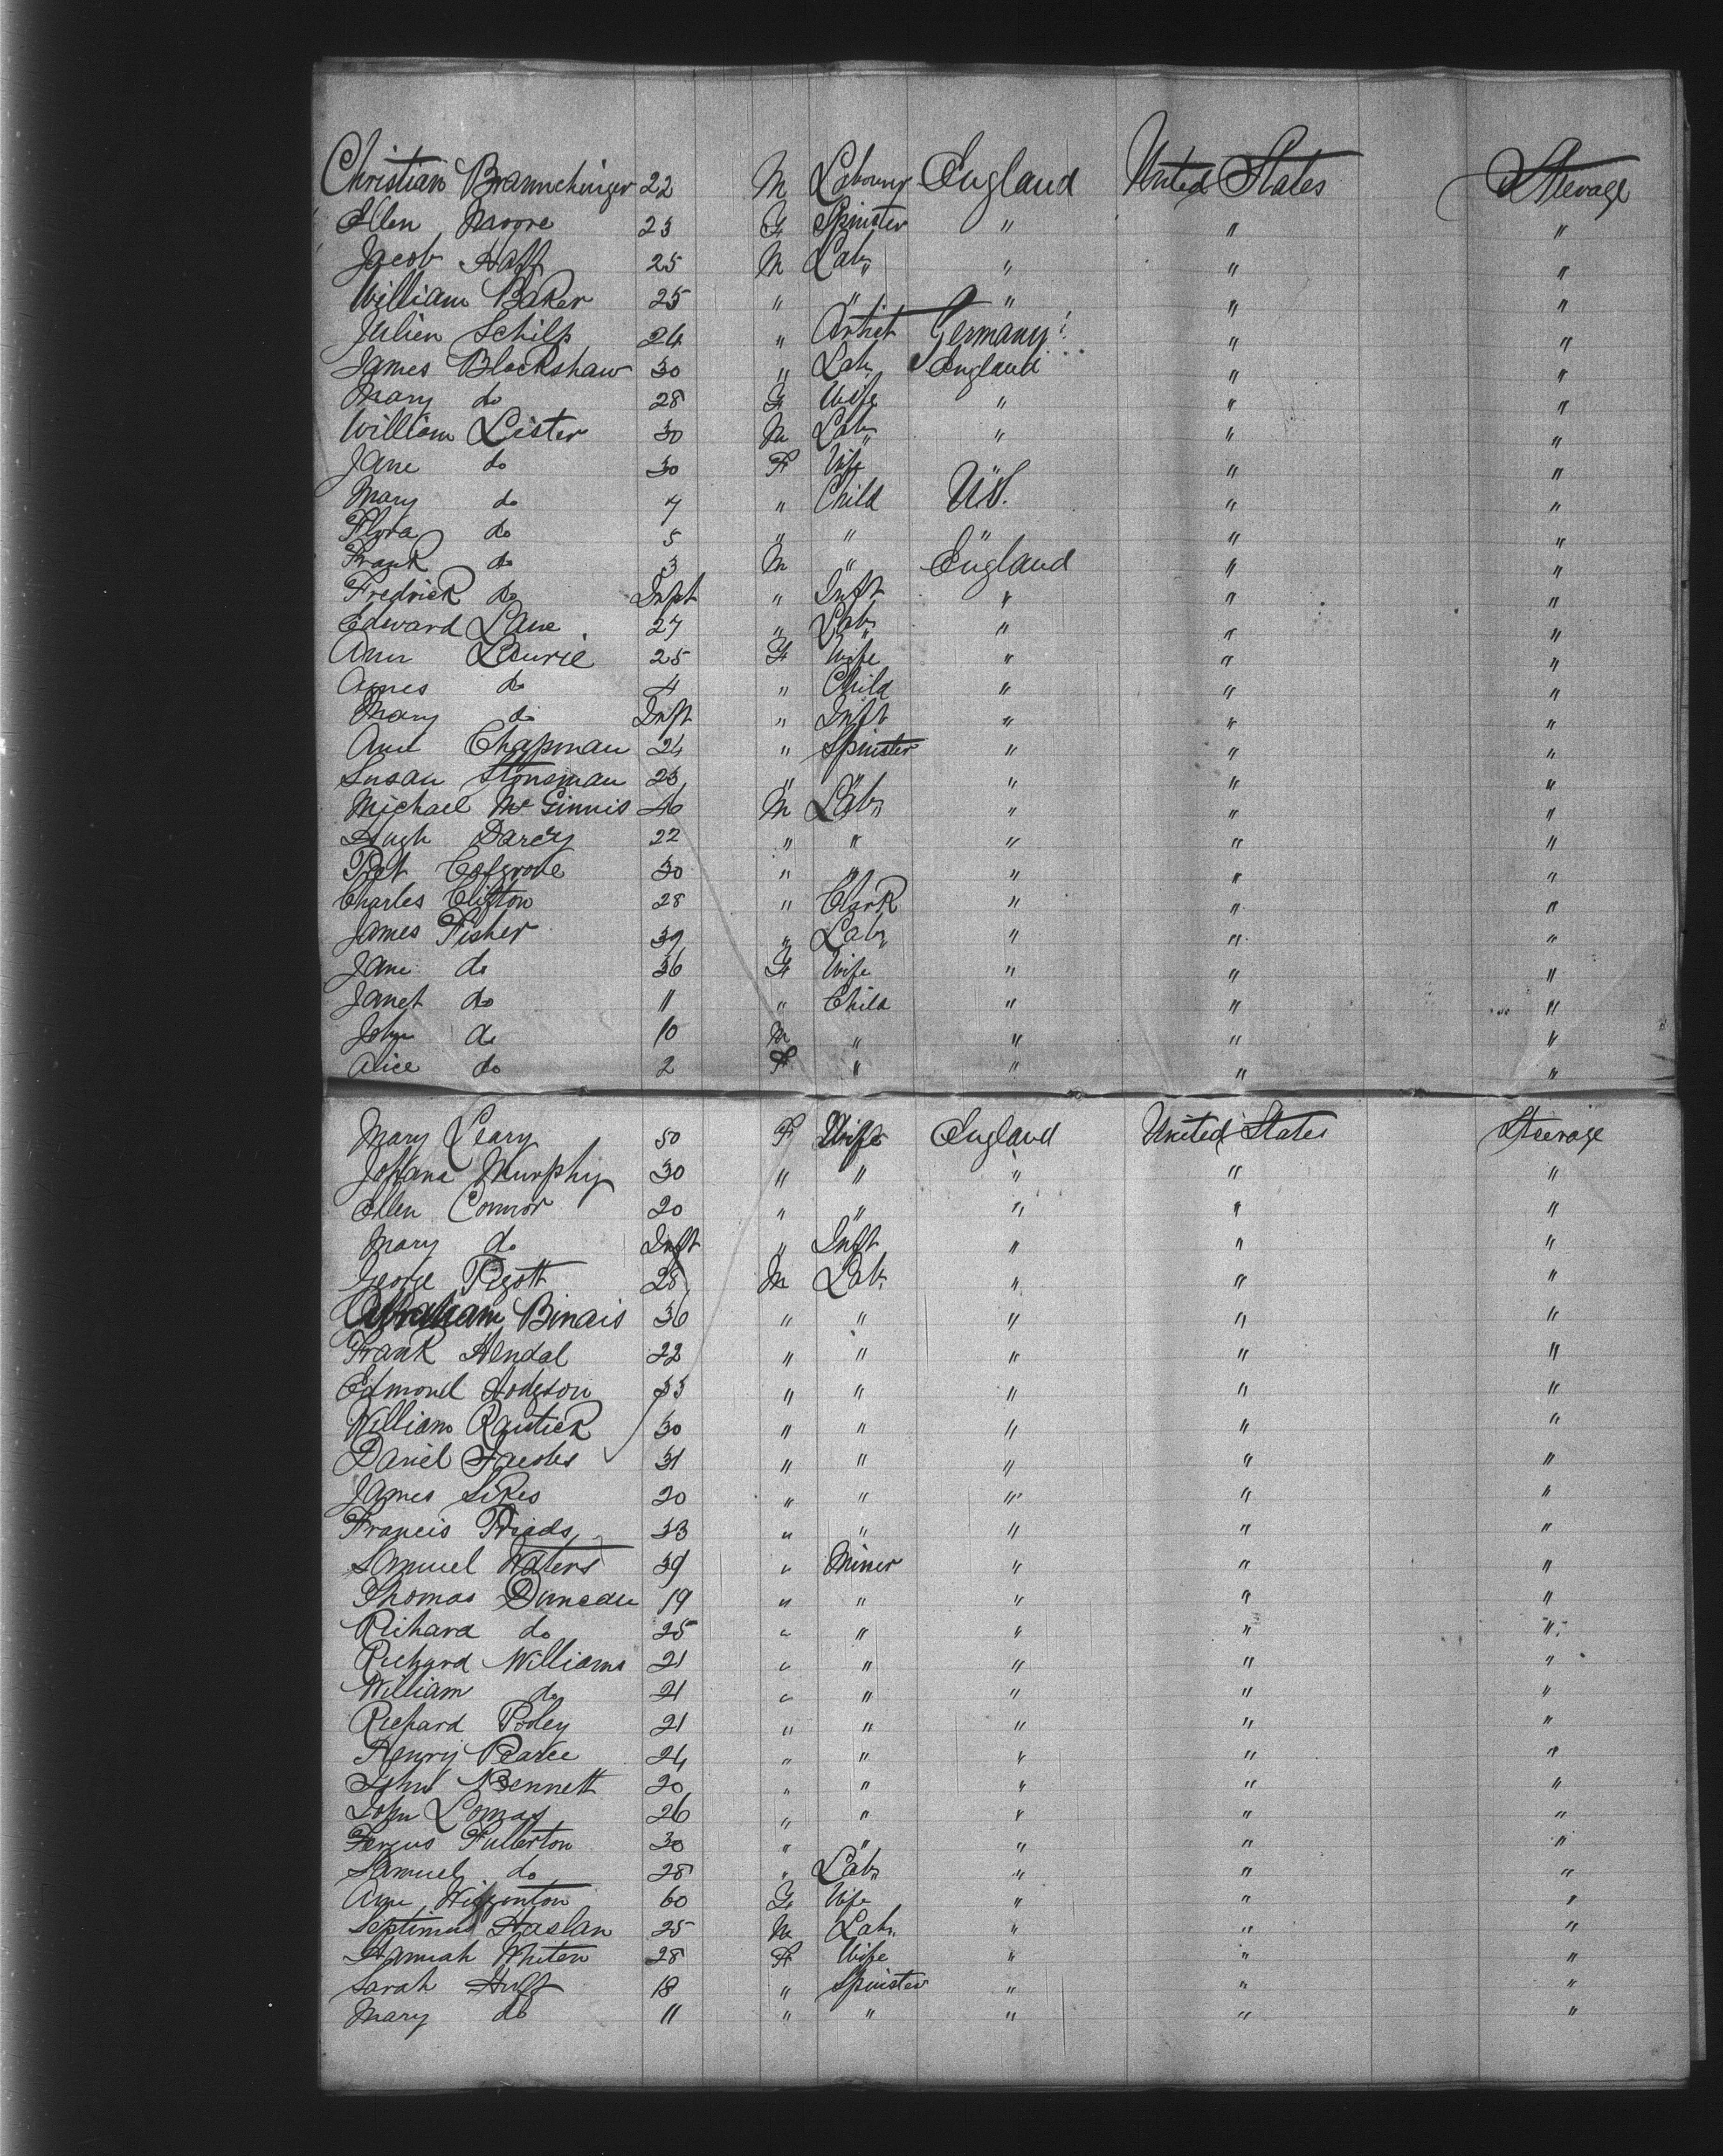 Christian Braunchinger 22 M Labourer England United States Steerage
Ellen Moore 23 F Spinster " " "
Jacob Haff 25 M Lab " " "
William Baker 25 " " " " "
Julien Schilp 24 " Artist Germany " "
James Blackshaw 30 " Lab England " "
Mary do 28 F Wife " " "
William Lister 30 M Lab " " "
Jane do 30 F Wife " " "
Mary do 7 " Child U.S. " "
Flora do 5 " " " " "
Frank do 3 M " England " "
Fredrick do Inft " Inft " " "
Edward Lane 27 " Lab " " "
Ann Laurie 25 F Wife " " "
Agnes do 4 " Child " " "
Mary do Inft " Inft " " "
Ann Chapman 24 " Spinster " " "
Susan Stonsman 25 " " " " "
Michael McGinnis 46 M Lab " " "
Hugh Darcy 22 " " " " "
Pat Cosgrove 30 " " " " "
Charles Clifton 28 " Clark " " "
James Fisher 39 " Lab " " "
Jane do 36 F Wife " " "
Janet do 11 " Child " " "
John do 10 M " " " "
Alice do 2 F " " " "
Mary Leary 50 F Wife England United States Steerage
Johana Murphy 30 " " " " "
Ellen Connor 20 " " " " "
Mary do Inft " Inft " " "
George Pigott 28 M Lab " " "
Abraham Binais 36 " " " " "
Frank Hendal 22 " " " " "
Edmond Hodgson 33 " " " " "
William 30 " " " " "
Daniel Jacobs 31 " " " " "
James Sikes 20 " " " " "
Francis 33 " " " " "
Samuel Waters 39 " Miner " " "
Thomas Duncan 19 " " " " "
Richard do 25 " " " " "
Richard Williams 21 " " " " "
William do 21 " " " " "
Richard Pooley 21 " " " " "
Henry Pearce 24 " " " " "
John Bennett 20 " " " " "
John Lomas 26 " " " " "
Fergus Fullerton 30 " " " " "
Samuel do 28 " Lab " " "
Ann Wigginton 60 F Wife " " "
Septimus Haslan 25 M Lab " " "
Hannah Whiten 28 F Wife " " "
Sarah Huft 18 " Spinster " " "
Mary do 11 " " " " "